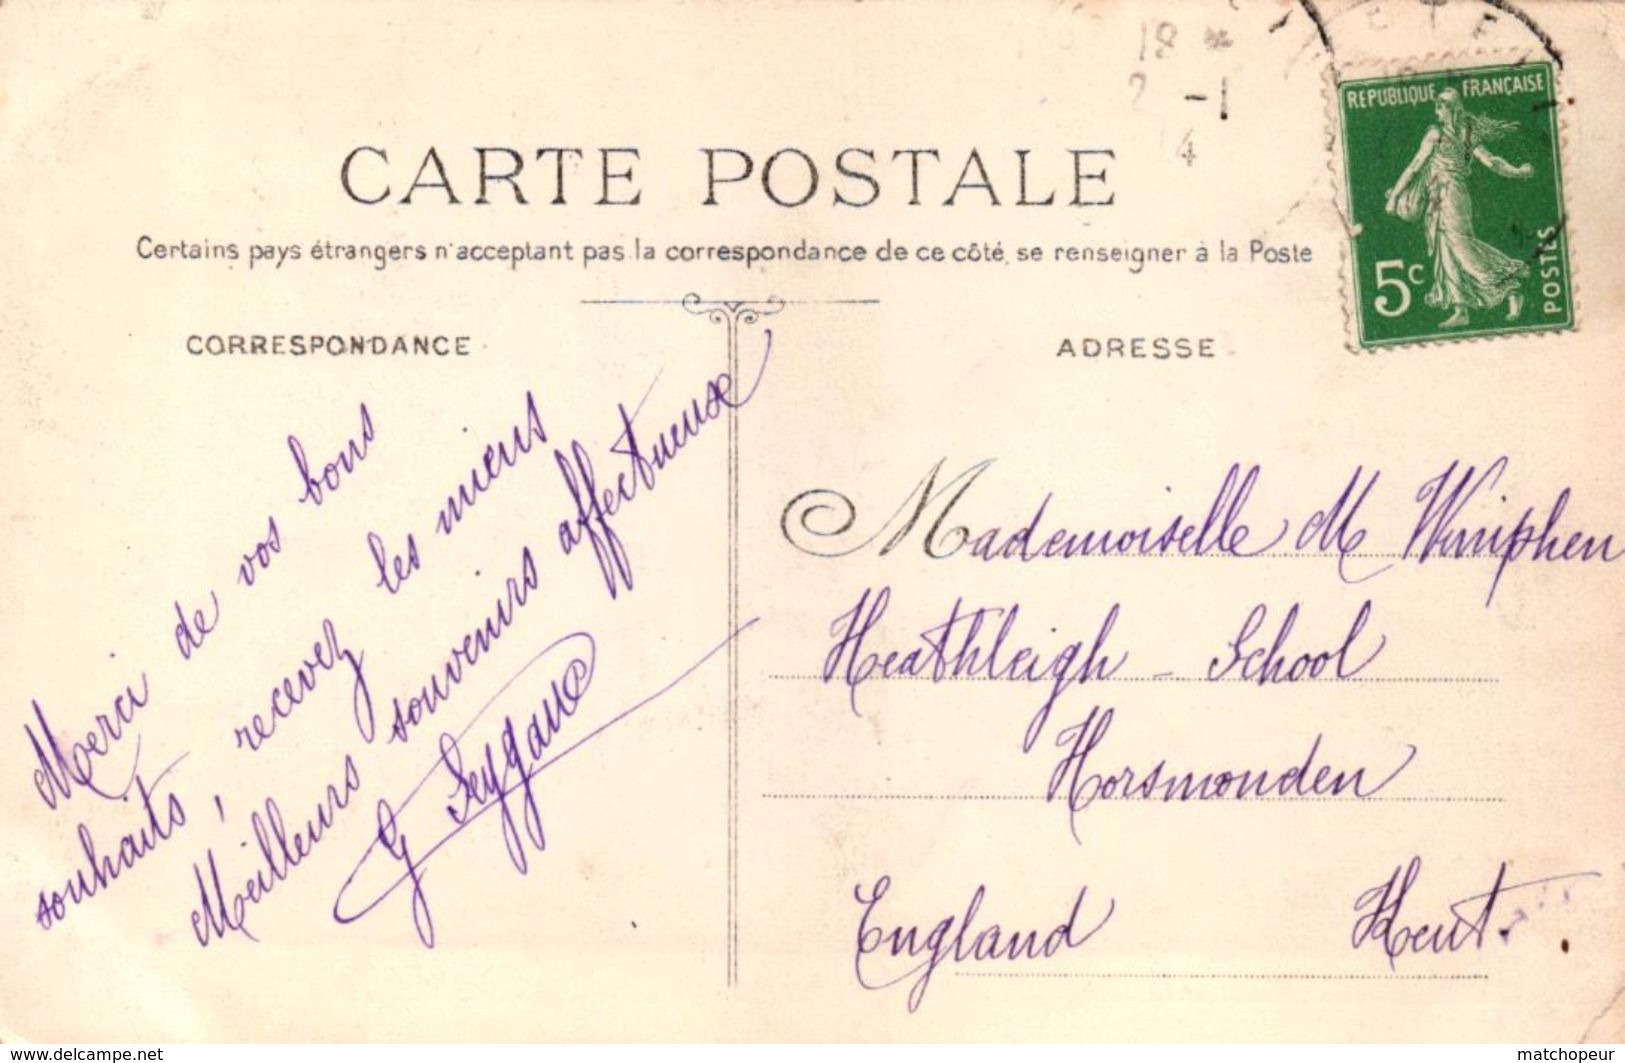 18
2 -1
4
RÉPUBLIQUE FRANÇAISE
5c
POSTES
CARTE POSTALE
Certains pays étrangers n'acceptant pas la correspondance de ce côté, se renseigner à la Poste
CORRESPONDANCE
Merci de vos bons
souhaits, recevez les miens
Meilleurs souvenirs affectueux
G
ADRESSE
Mademoiselle M Winiphen
Heathleigh - School
Horsmonden
England Kent.
www.delcampe.net
matchopeur